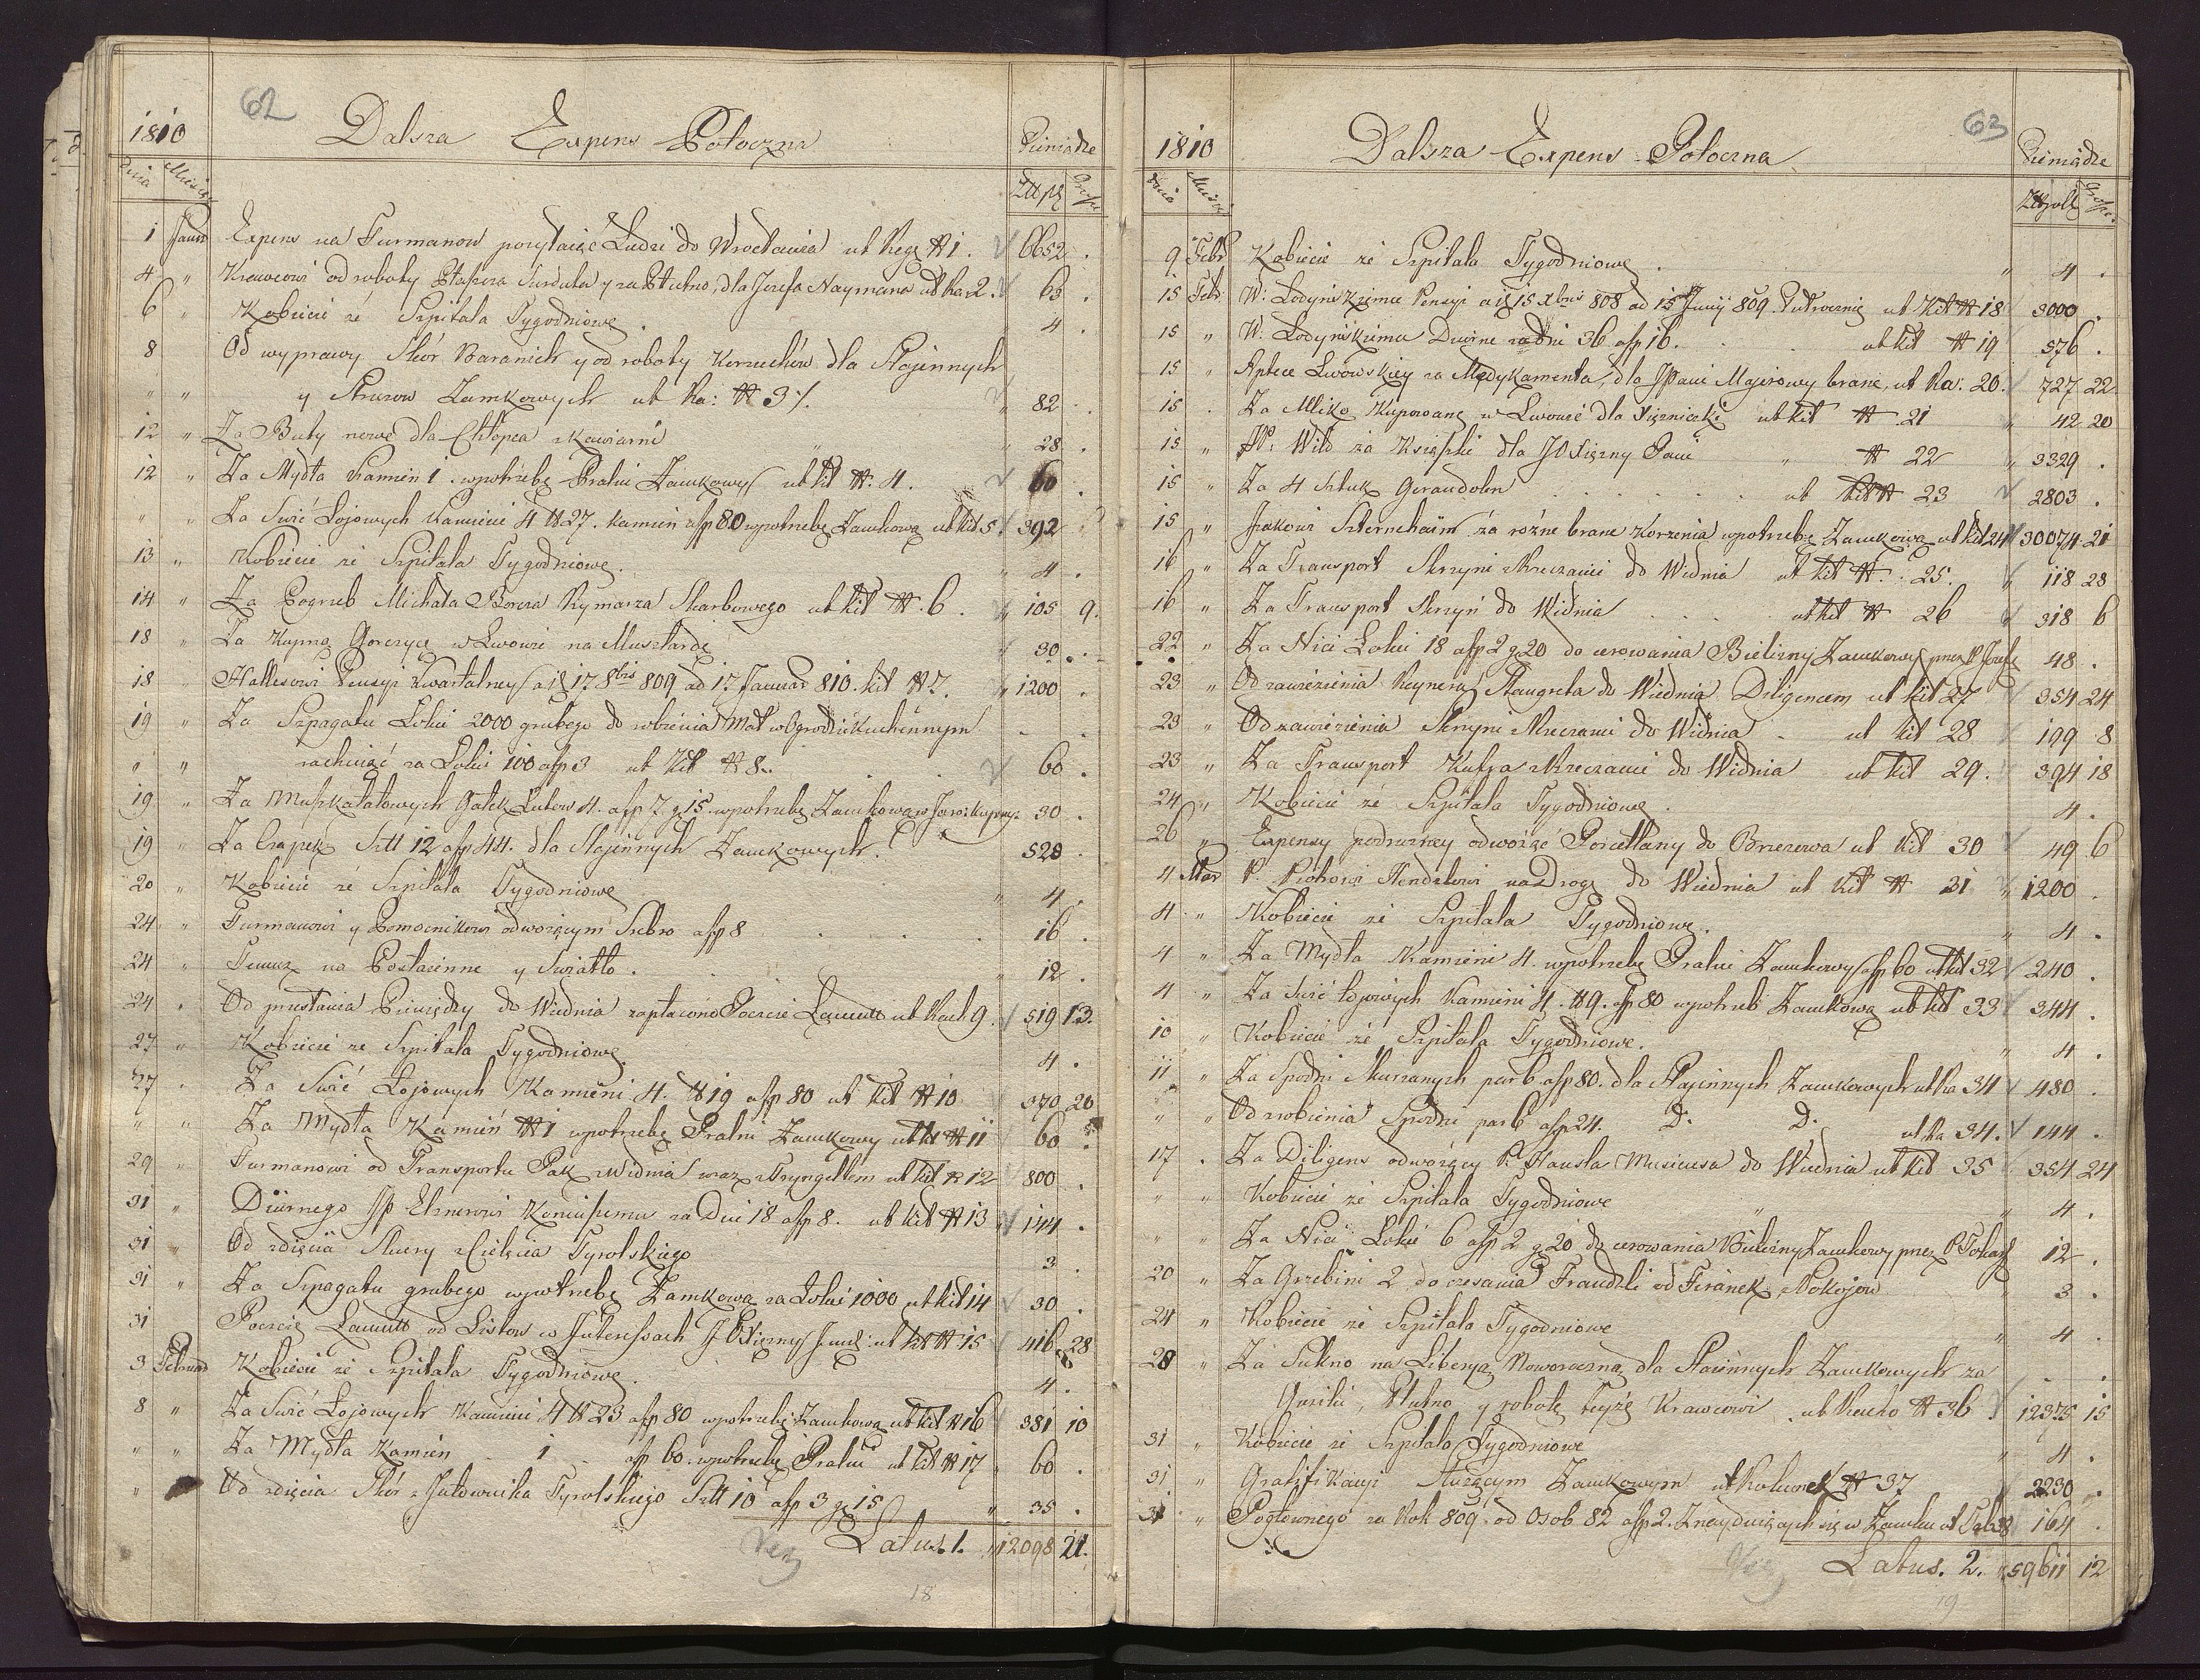 62
1810 Dalsza Expens Potoczna Pieniądze
Dnia Miesiąc Złlpl Grosze
1 Januar Expens na Furmanow posyłaiąć Ludzi do Wrocławia ut Reg # 1. 6652 .
4 " Krawcowi od roboty Płaszcza Surduta y za Płutno, dla Jozefa Naymana ut Ra: 2. 63 .
6 " Kobiecie ze Szpitala Tygodniowe . 4 .
8 Od wyprawy Skór Baranich y od roboty Korzuchów dla Stajennych
" " y Struzow Zamkowych ut Ra: # 3 ٪. 82 .
12 " Za Buty nowe dla Chłopca z Kawiarni " 28 .
12 " Za Mydła Kamien 1. wpotrzebę Pralni Zamkowey ut kit #. 4. 60 .
" " Za Swić Łojowych Kamieni 4 # 27. kamień afp 80 wpotrzebę Zamkową ut Kit 5. 392
13 " Kobiecie ze Szpitala Tygodniowe . " 4 .
14 " Za Pogrzeb Michała Rymarza Skarbowego ut Kit #. 6. " 105 9.
18 " Za Kupno Gorczycę w Lwowie na Musztardę " 30 .
18 " Hallesowi Pensyi Kwartalney a 17 8bris 809 ad 17 Januar 810. Kit # 7. 1200 .
19 " Za Szpagatu Łokci 2000 grubego do robienia Mat w Ogrodzie Kuchennym . .
" " rachuiąć za Łokci 100 afp 3 ut Kit # 8. 60 .
19 " Za Muszkatałowych Gałek Łutow 4. afp 7 g 15. wpotrzebę Zamkową w Jaros: kupny. 30 .
19 " Za Czapek Szt 12 afp 44. dla Stajennych Zamkowych. 528 .
20 " Kobiecie ze Szpitala Tygodniowe " 4 .
24 " Furmanowi y Pomocnikowi odwożącym Srebro afp 8 . . . 16 .
24 " Temuz na Postaienne y Swiatło . " 12 .
24 " Od przesłania Pieniędzy do Wiednia zapłacono Poczcie ut Rach 9. 519 13.
27 " Kobiecie ze Szpitala Tygodniowe 4 .
27 " Za Swić Łojowych Kamieni 4. # 19 afp 80 ut Kit # 10 370 20
" " Za Mydła Kamień # 1 wpotrzebę Pralni Zamkowy ut Kit # 11 60 .
29 " Furmanowi od Transportu Pak z Widnia wraz z Tryngeltem ut Kit # 12 800 .
31 " Diurnego JP Elznerowi Koniuszemu za Dni 18 afp 8. ut Kit # 13 144 .
31 " Od zdięcia Skury z Cielęcia Tyrolskiego 3 .
31 " Za Szpagatu grubego wpotrzebę Zamkową za Łokci 1000 ut Kit 14 30 .
31 Poczcie od Listow w Interessach ut Kit # 15 416 28
3 Februar Kobiecie ze Szpitala Tygodniowe . 4 .
8 " Za Swić Łojowych Kamieni 4 # 23 afp 80 wpotrzebę Zamkową ut Kit # 16 381 10
" " Za Mydła Kamien 1 afp 60. wpotrzebę Pralni ut Kit # 17 60 .
" Od zdięcia Skór z Jałownika Tyrolskiego Szt 10 afp 3 g 15 " 35 .
Latus. 1. 12098 21.
18
63
1810 Dalsza Expens Potoczna Pieniądze
Dnia Złpoll Grosze
9 Febr Kobiecie ze Szpitala Tygodniowe . " 4 .
15 Febr W: Łodyńskiemu Pensyi a 15 Xbris 808 ad 15 Junij 809. Pułrocznie ut Kit # 18 3000 .
15 " W: Łodyńskiemu Diurne za Dni 36 afp 16. ut Kit # 19 576 .
15 " Aptece Lwowskiey za Medykamenta, dla JPani Majerowy brane, ut Ra: 20. 727 22
15 . Za Mliko Kupowane w Lwowie dla Xiężniczki ut Kit # 21 " 42 20
15 " JP: Wild za Książki dla JO Xiężny Pani " # 22 " 3329 .
15 " Za 4 Sztuk Girandolen . . . . . ut Kit # 23 2803 .
15 " Izakowi Szternchaim za rożne brane Korzenia wpotrzebę Zamkową ut Kit 24 30074 21
16 " Za Transport Skrzyni z Rzeczami do Widnia ut Kit #. 25. 118 28
16 " Za Transport Skrzyń do Widnia . . . . ut Kit # 26 318 6
22 " Za Nici Łokci 18 afp 2 g 20 do cerowania Bielizny Zamkowy przez P. Jozefę 48 .
23 " Od zawiezienia do Wiednia Diligencem ut Kit 27 354 24
23 " Od zawiezienia Skrzyni z Rzeczami do Widnia . ut Kit 28 199 8
23 " Za Transport Kufra z Rzeczami do Widnia ut Kit 29. 394 18
24 " Kobiecie ze Szpitala Tygodniowe . 4 .
26 " Expensy podruzney odwożąć Porcellany do Brzezowa ut Kit 30 49 6
4 Mar P. Piohowi Hendzlowi na Drogę do Wiednia ut Kit # 31 " 1200 .
4 " Kobiecie ze Szpitala Tygodniowe. " 4 .
4 " Za Mydła Kamieni 4. wpotrzebę Pralni Zamkowy afp 60 ut Kit 32 240 .
4 " Za Swić łojowych Kamieni 4. # 9. afp 80 wpotrzeb Zamkową ut Kit 33 344 .
10 " Kobiecie ze Szpitala Tygodniowe. " 4 .
11 " Za Spodni Skurzanych par 6 afp 80. dla Stajennych Zamkowych ut Ra 34 480 .
" " Od zrobienia Spodni par 6 afp 24. D: D: ut Ra 34. 144 .
17 . Za Diligens odwożący P. Hausła Musicusa do Wiednia ut Kit 35 354 24
" " Kobiecie ze Szpitala Tygodniowe " " 4 .
" " Za Nici Łokci 6 afp 2 g 20 do cerowania Bielizny Zamkowy przez P. 12 .
20 " Za Grzebini 2 do czesania Frandzli od Firanek z Pokojow " 3 .
24 " Kobiecie ze Szpitala Tygodniowe " 4 .
28 " Za Sukno na Liberyę Noworoczną dla Staiennych Zamkowych za . .
Guziki, Płutno y robotę teyże Krawcowi . ut Racho # 36 12375 15
31 " Kobiecie ze Szpitala Tygodniowe " 4 .
31 " Gratifikacyi Służącym Zamkowym ut Rachunek # 37 " 2230 .
31 " Pogłownego za Rok 809. od Osob 82 afp 2. Znayduiących się w Zamku ut 38 164 .
Latus. 2. 59611 12
19